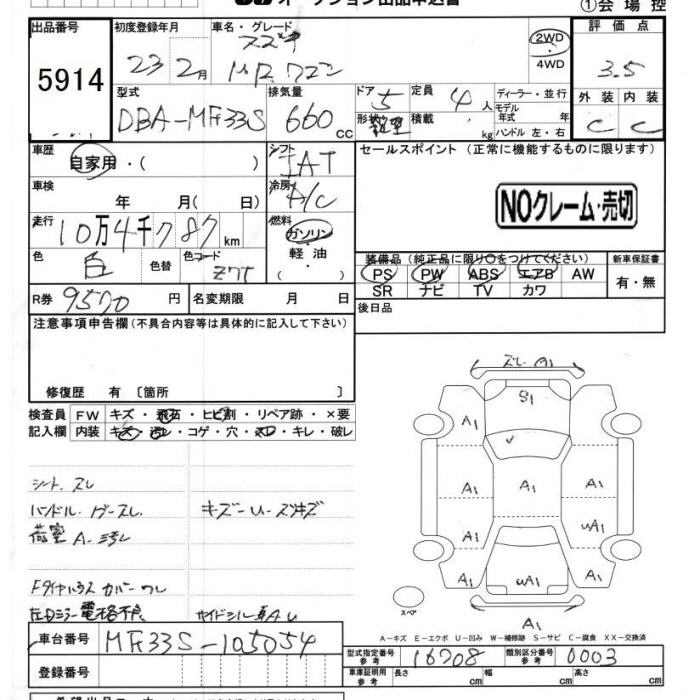 オークション出品申込書
①会場控
出品番号 初度登録年月 車名・グレード スズキ 2WD 評価点
5914 23 2月 MRワゴン 4WD 3.5
型式 排気量 ドア 5 定員 4人 ディーラー・並行 外装 内装
DBA-MF33S 660cc 形状 積載 kg モデル年式 年 ハンドル 左・右 C C
車歴 自家用・( ) シフト IAT セールスポイント (正常に機能するものに限ります)
車検 年 月( 日) 冷房 A/C
NOクレーム・売切
走行 10万4千787km 燃料 ガソリン
色 色替 色コード Z7T 軽油・( )
装備品 (純正品に限り○をつけてください) 新車保証書
PS PW ABS エアB AW 有・無
SR ナビ TV カワ
R券 9570円 名変期限 月 日
後日品
注意事項申告欄 (不具合内容等は具体的に記入して下さい)
修復歴 有 〔箇所 〕
検査員 FW キズ・飛石・ヒビ割・リペア跡・×要
記入欄 内装 キズ・汚レ・コゲ・穴・スレ・キレ・破レ
スレ A1
S1
A1 A1
A1 A1 A1
A1 uA1
A1 uA1 A1
A1
シート スレ
ハンドル グースレ キズ-U-スリキズ
荷室 A-汚レ
カバー ワレ
左Dミラー電格不良 サイドシル
スペア
A-キズ E-エクボ U-凹み W-補修跡 S-サビ C-腐食 XX-交換済
車台番号 MF33S-105054
型式指定番号 参考 16708 類別区分番号 参考 0003
登録番号
車庫証明用 参考 長さ cm 幅 cm 高さ cm